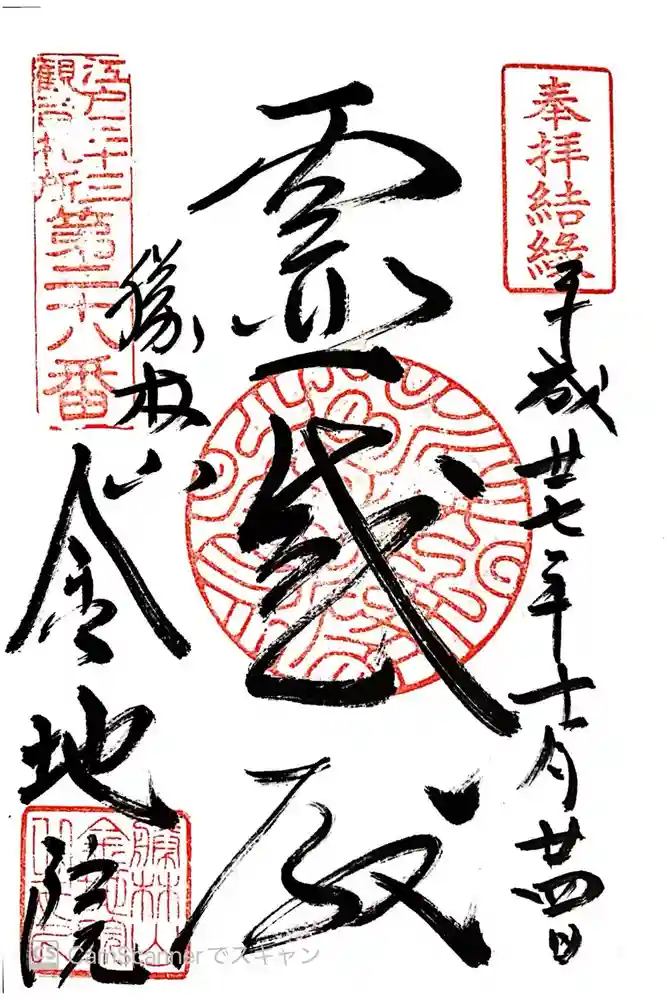 奉拝結縁
平成廿七年十月廿四日
霊感殿
江戸三十三
観音札所
第二十八番
勝林山
金地院
勝林山
金地院
CamScannerでスキャン